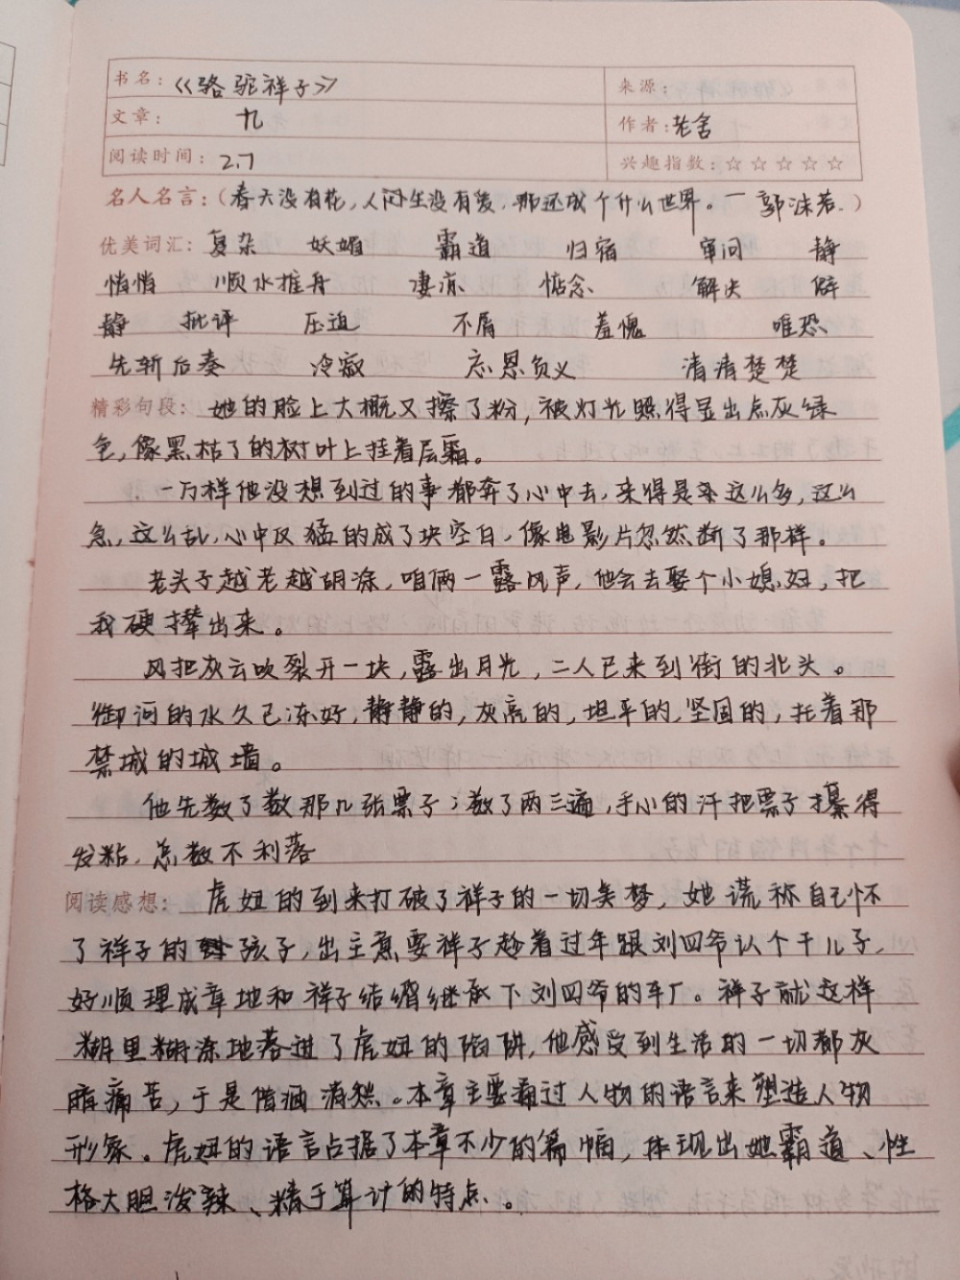 书名：《骆驼祥子》 来源：
文章： 九 作者：老舍
阅读时间： 2.7 兴趣指数：☆☆☆☆☆
名人名言：（春天没有花，人间生没有爱，那还成个什么世界。—郭沫若.）
优美词汇： 复杂 妖媚 霸道 归宿 审问 静
悄悄 顺水推舟 凄凉 惦念 解决 僻
静 批评 压迫 不屑 羞愧 唯恐
先斩后奏 冷寂 忘恩负义 清清楚楚
精彩句段： 她的脸上大概又擦了粉，被灯光照得显出点灰绿
色，像黑枯了的树叶上挂着层霜。
一万样他没想到过的事都奔了心中去，来得是这么多，这么
急，这么乱，心中反猛的成了块空白，像电影片忽然断了那样。
老头子越老越胡涂，咱俩一露风声，他会去娶个小媳妇，把
我硬撵出来。
风把灰云吹裂开一块，露出月光，二人已来到街的北头。
御河的水久已冻好，静静的，灰亮的，坦平的，坚固的，托着那
禁城的城墙。
他先数了数那几张票子；数了两三遍，手心的汗把票子攥得
发粘，总数不利落
阅读感想： 虎妞的到来打破了祥子的一切美梦，她谎称自己怀
了祥子的孩子，出主意要祥子趁着过年跟刘四爷认个干儿子，
好顺理成章地和祥子结婚继承下刘四爷的车厂。祥子就这样
糊里糊涂地落进了虎妞的陷阱，他感受到生活的一切都灰
暗痛苦，于是借酒消愁。本章主要通过人物的语言来塑造人物
形象。虎妞的语言占据了本章不少的篇幅，体现出她霸道、性
格大胆泼辣、精于算计的特点。